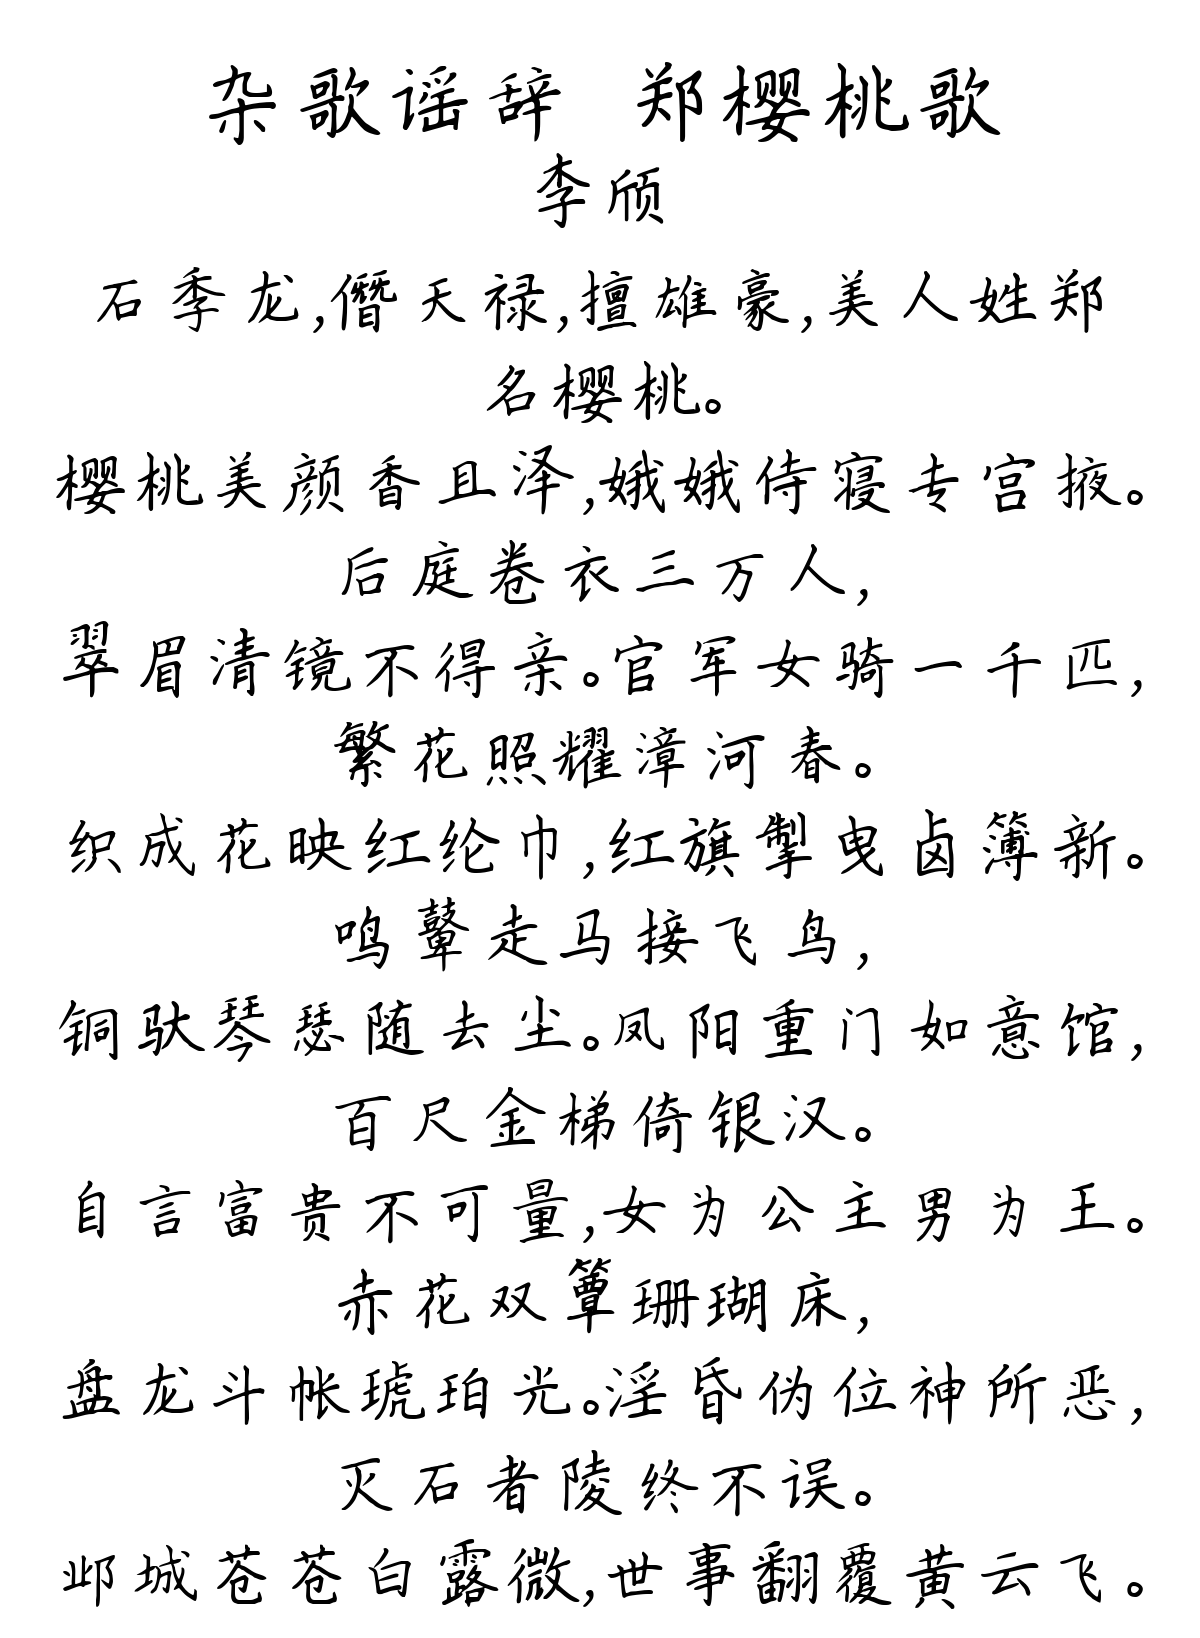 杂歌谣辞 郑樱桃歌
李颀
石季龙,僭天禄,擅雄豪,美人姓郑
名樱桃。
樱桃美颜香且泽,娥娥侍寝专宫掖。
后庭卷衣三万人,
翠眉清镜不得亲。官军女骑一千匹,
繁花照耀漳河春。
织成花映红纶巾,红旗掣曳卤簿新。
鸣鼙走马接飞鸟,
铜驮琴瑟随去尘。凤阳重门如意馆,
百尺金梯倚银汉。
自言富贵不可量,女为公主男为王。
赤花双簟珊瑚床,
盘龙斗帐琥珀光。淫昏伪位神所恶,
灭石者陵终不误。
邺城苍苍白露微,世事翻覆黄云飞。